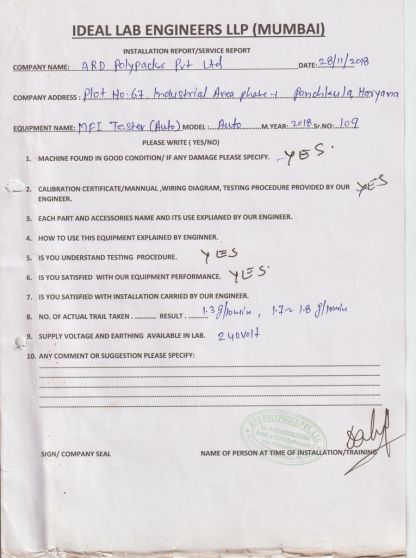 IDEAL LAB ENGINEERS LLP (MUMBAI)
INSTALLATION REPORT/SERVICE REPORT
COMPANY NAME: ARD Polypacks Pvt Ltd DATE: 28/11/2018
COMPANY ADDRESS: Plot No-67, Industrial Area phase-1 Panchkula, Haryana
EQUIPMENT NAME: MFI Tester (Auto) MODEL: Auto M.YEAR: 2018 Sr.NO: 109
PLEASE WRITE ( YES/NO)
1. MACHINE FOUND IN GOOD CONDITION/ IF ANY DAMAGE PLEASE SPECIFY. YES.
2. CALIBRATION CERTIFICATE/MANNUAL ,WIRING DIAGRAM, TESTING PROCEDURE PROVIDED BY OUR YES
ENGINEER.
3. EACH PART AND ACCESSORIES NAME AND ITS USE EXPLIANED BY OUR ENGINEER.
4. HOW TO USE THIS EQUIPMENT EXPLAINED BY ENGINNER.
5. IS YOU UNDERSTAND TESTING PROCEDURE. YES
6. IS YOU SATISFIED WITH OUR EQUIPMENT PERFORMANCE. YES.
7. IS YOU SATISFIED WITH INSTALLATION CARRIED BY OUR ENGINEER.
8. NO. OF ACTUAL TRAIL TAKEN . ........... RESULT . ......... 1.3 g/10min , 1.7~1.8 g/10min
9. SUPPLY VOLTAGE AND EARTHING AVAILABLE IN LAB. 240volt
10. ANY COMMENT OR SUGGESTION PLEASE SPECIFY:
ARD POLYPACKS PVT. LTD.
SIGN/ COMPANY SEAL NAME OF PERSON AT TIME OF INSTALLATION/TRAINING